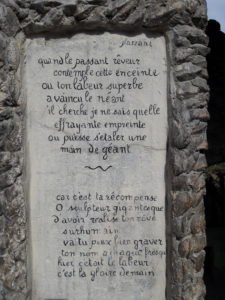 passant
quand le passant rêveur
contemple cette enceinte
ou ton labeur superbe
a vaincu le néant
il cherche je ne sais quelle
effrayante empreinte
ou puisse s'etaler une
main de géant
car c'est ta récompense
O sculpteur gigantesque
d'avoir réalisé ton rêve
surhumain
va tu peux bien graver
ton nom a chaque fresque
hier c'etait le labeur
c'est la gloire demain